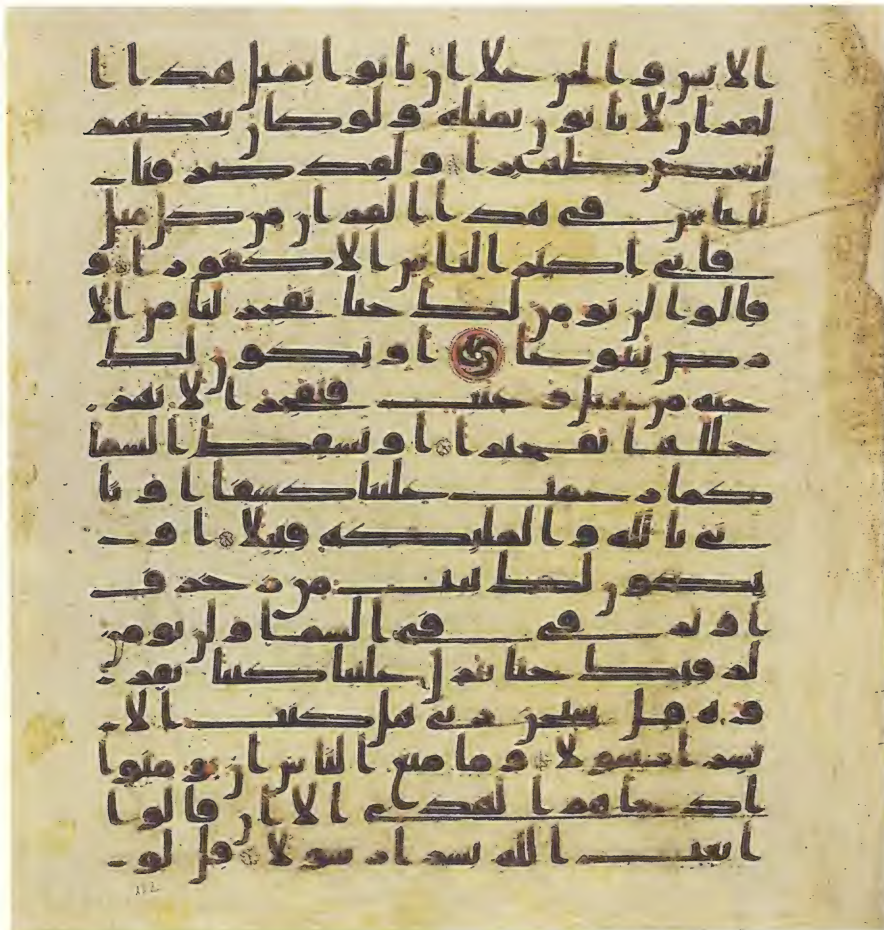 الانس والجن علا ان ياتوا بمثل هذا ا
لقران لا ياتون بمثله ولو كان بعضهم
لبعض ظهيرا ولقد صرفنا
للناس في هذا القران من كل مثل
فابى اكثر الناس الا كفورا و
قالوا لن نومن لك حتا تفجر لنا من الا
رض ينبوعا او تكون لك
جنه من نخيل و عنب فتفجر الانهر
خللها تفجيرا او تسقط السما
كما زعمت علينا كسفا او تا
تى بالله والمليكه قبيلا او
يكون لك بيت من زخرف
او ترقى فى السما ولن نومن
لرقيك حتا تنزل علينا كتبا نقر
وه قل سبحن ربى هل كنت الا
بشرا رسولا وما منع الناس ان يومنوا
اذ جاهم الهدى الا ان قالوا
ابعث الله بشرا رسولا قل لو